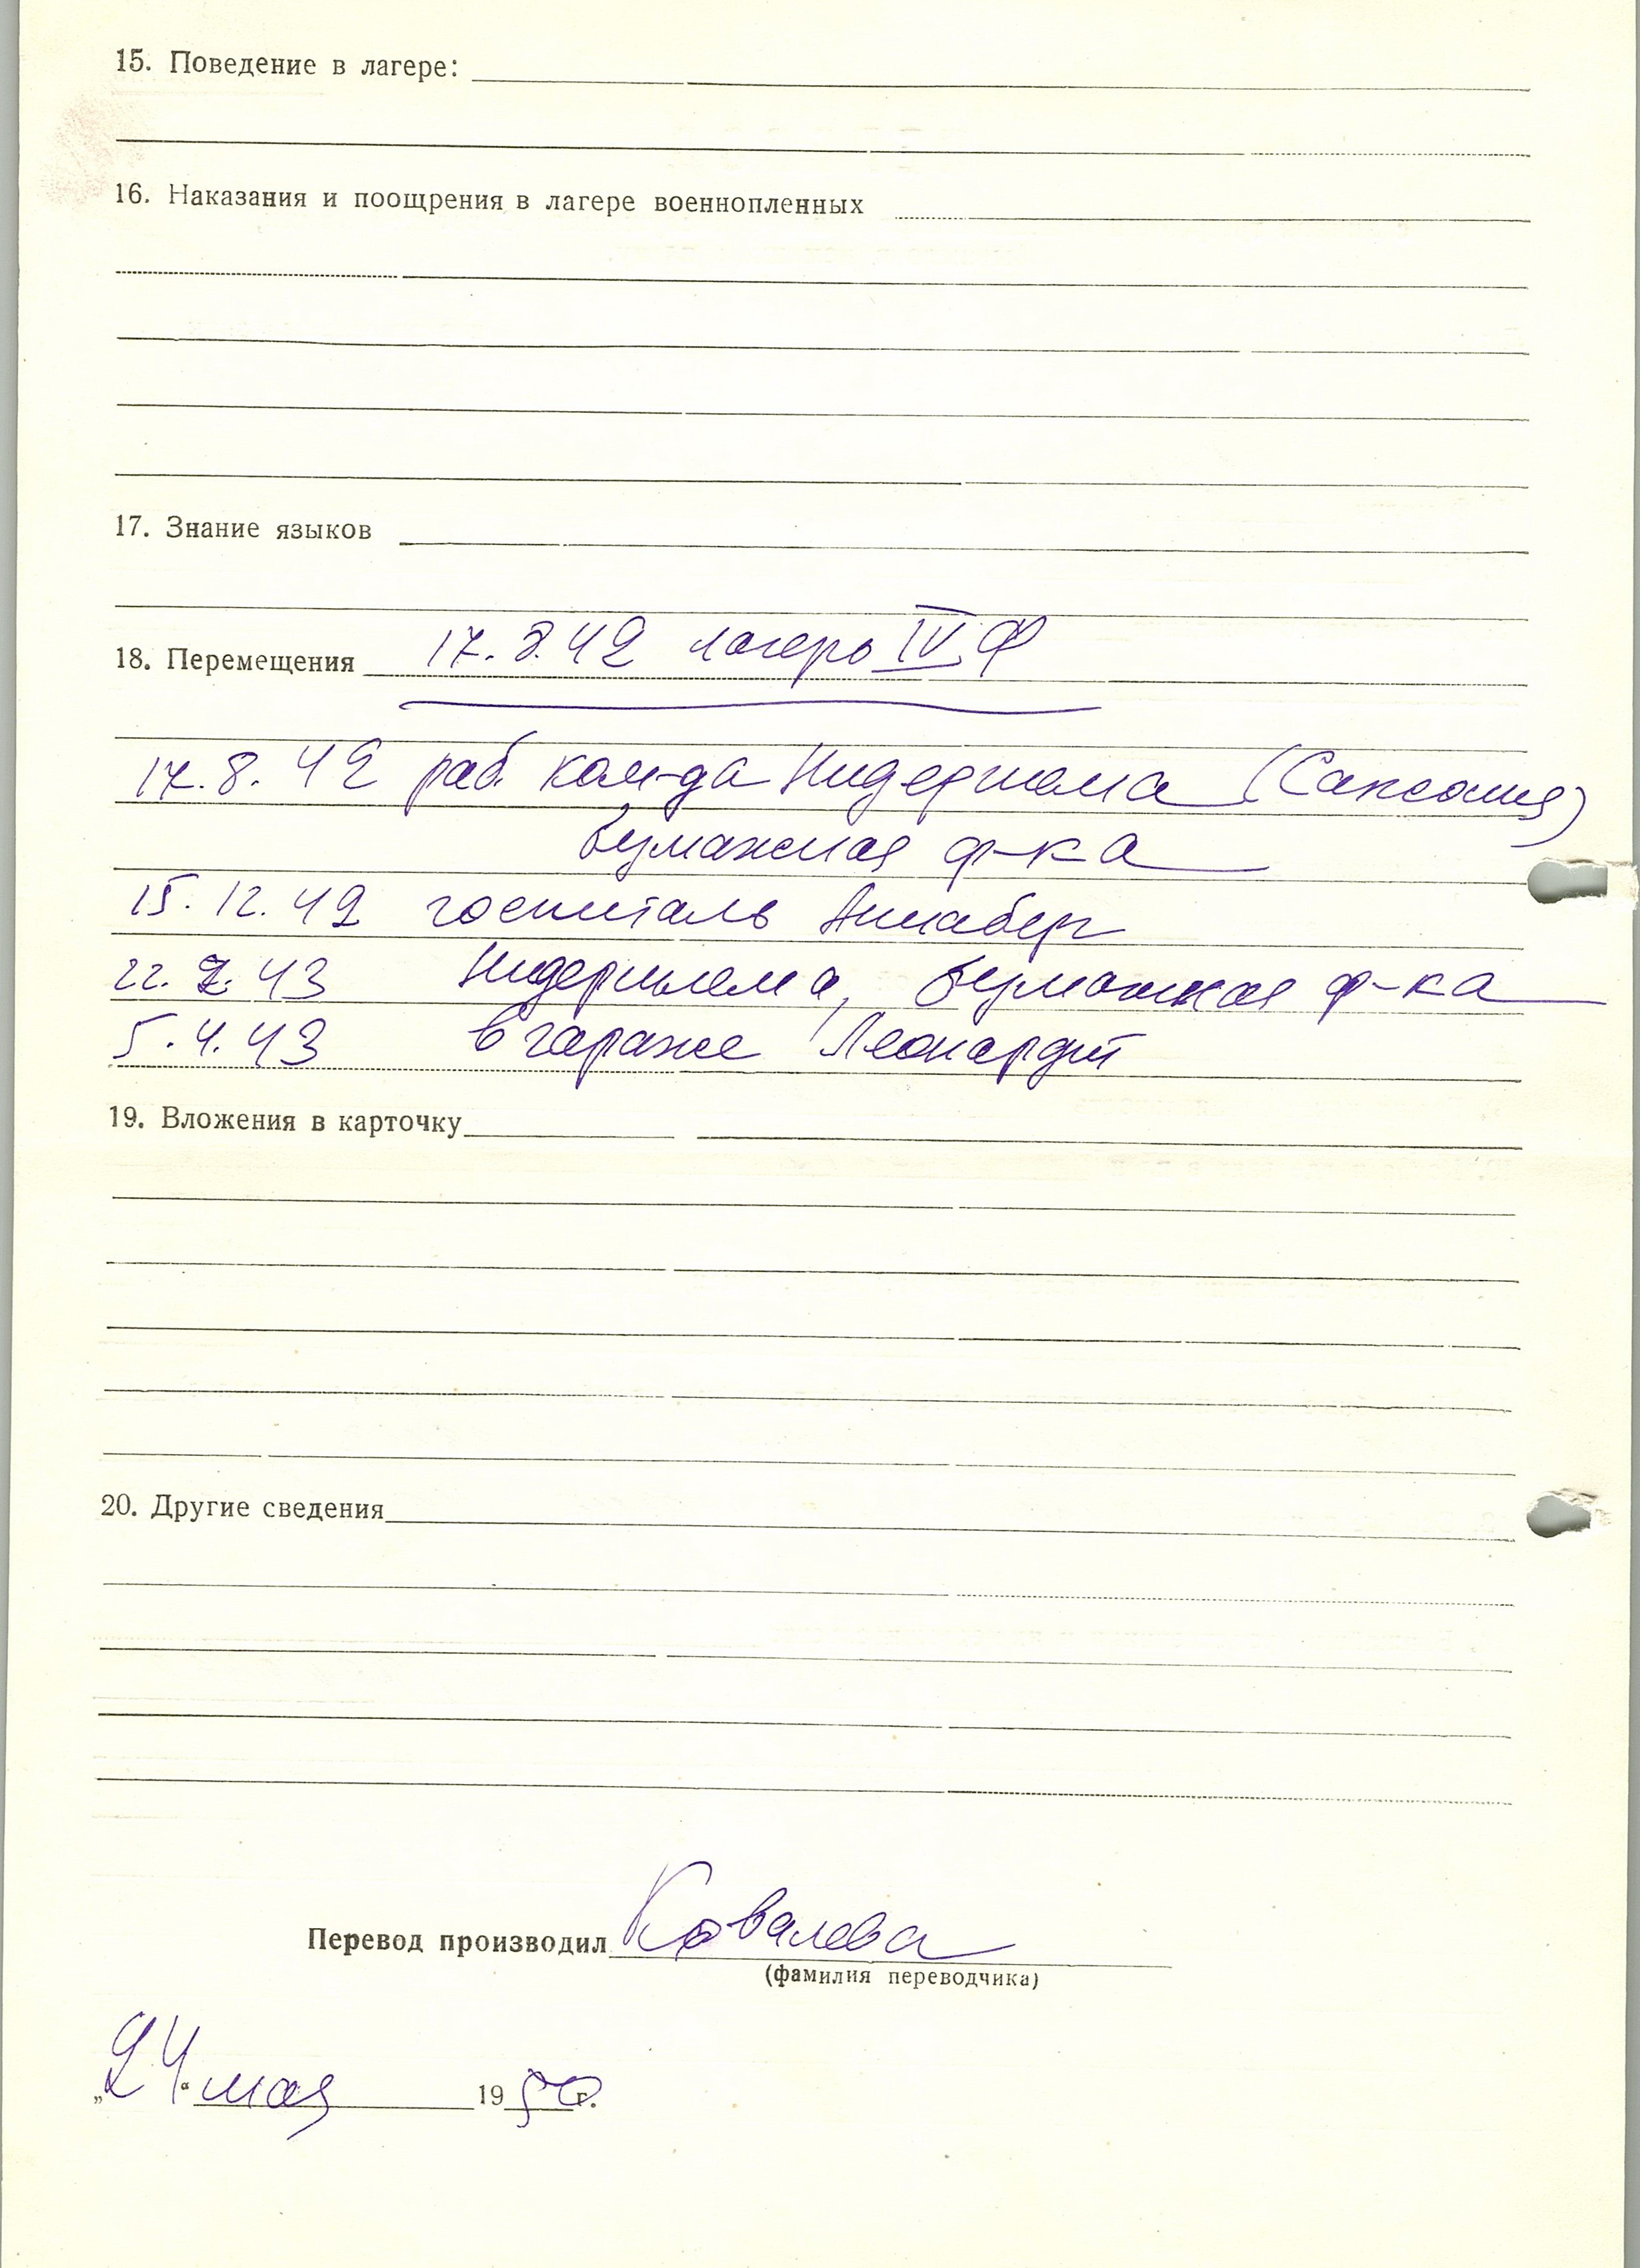 15. Поведение в лагере:
16. Наказания и поощрения в лагере военнопленных
17. Знание языков
18. Перемещения 17.8.42 лагерь IV Ф
17.8.42 раб. ком-да Нидершлема (Саксония)
бумажная ф-ка
15.12.42 госпиталь Аннаберг
22.2.43 Нидершлема, бумажная ф-ка
5.4.43 в гараже Леонардт
19. Вложения в карточку
20. Другие сведения
Перевод производил Ковалева
(фамилия переводчика)
„24“ мая 1950 г.